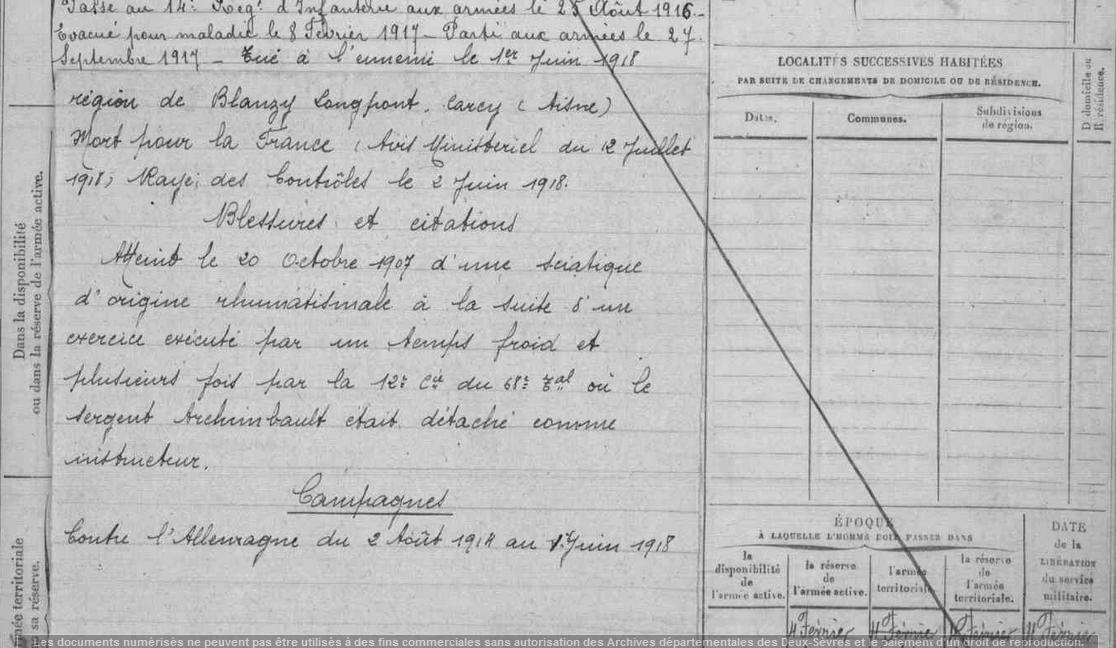 Passé au 14e Regt d'Infanterie aux armées le 25 Août 1916.-
Evacué pour maladie le 8 Février 1917 - Parti aux armées le 27
Septembre 1917 - Tué à l'ennemi le 1er Juin 1918
région de Blanzy Longpont. Carcy (Aisne)
Mort pour la France (Avis Ministériel du 12 Juillet
1918) Rayé des Contrôles le 2 Juin 1918.
Blessures et citations
Atteint le 20 Octobre 1907 d'une sciatique
d'origine rhumatismale à la suite d'un
exercice exécuté par un temps froid et
plusieurs fois par la 12e Cie du 68e où le
sergent Archimbault était détaché comme
instructeur.
Campagnes
Contre l'Allemagne du 2 Août 1914 au 1er Juin 1918
Dans la disponibilité
ou dans la réserve de l'armée active.
mée territoriale
sa réserve.
LOCALITÉS SUCCESSIVES HABITÉES
PAR SUITE DE CHANGEMENTS DE DOMICILE OU DE RÉSIDENCE.
Dates.
Communes.
Subdivisions
de région.
D domicile ou
R résidence.
ÉPOQUE
À LAQUELLE L'HOMME DOIT PASSER DANS
la
disponibilité
de
l'armée active.
la réserve
de
l'armée active.
l'armée
territoriale.
la réserve
de
l'armée
territoriale.
DATE
de la
LIBÉRATION
du service
militaire.
Février
Février
Février
Février
Les documents numérisés ne peuvent pas être utilisés à des fins commerciales sans autorisation des Archives départementales des Deux-Sèvres et le paiement d'un droit de reproduction.